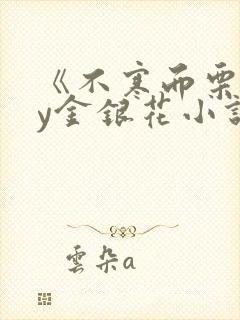 《不寒而栗
y金银花小说
雲朵a